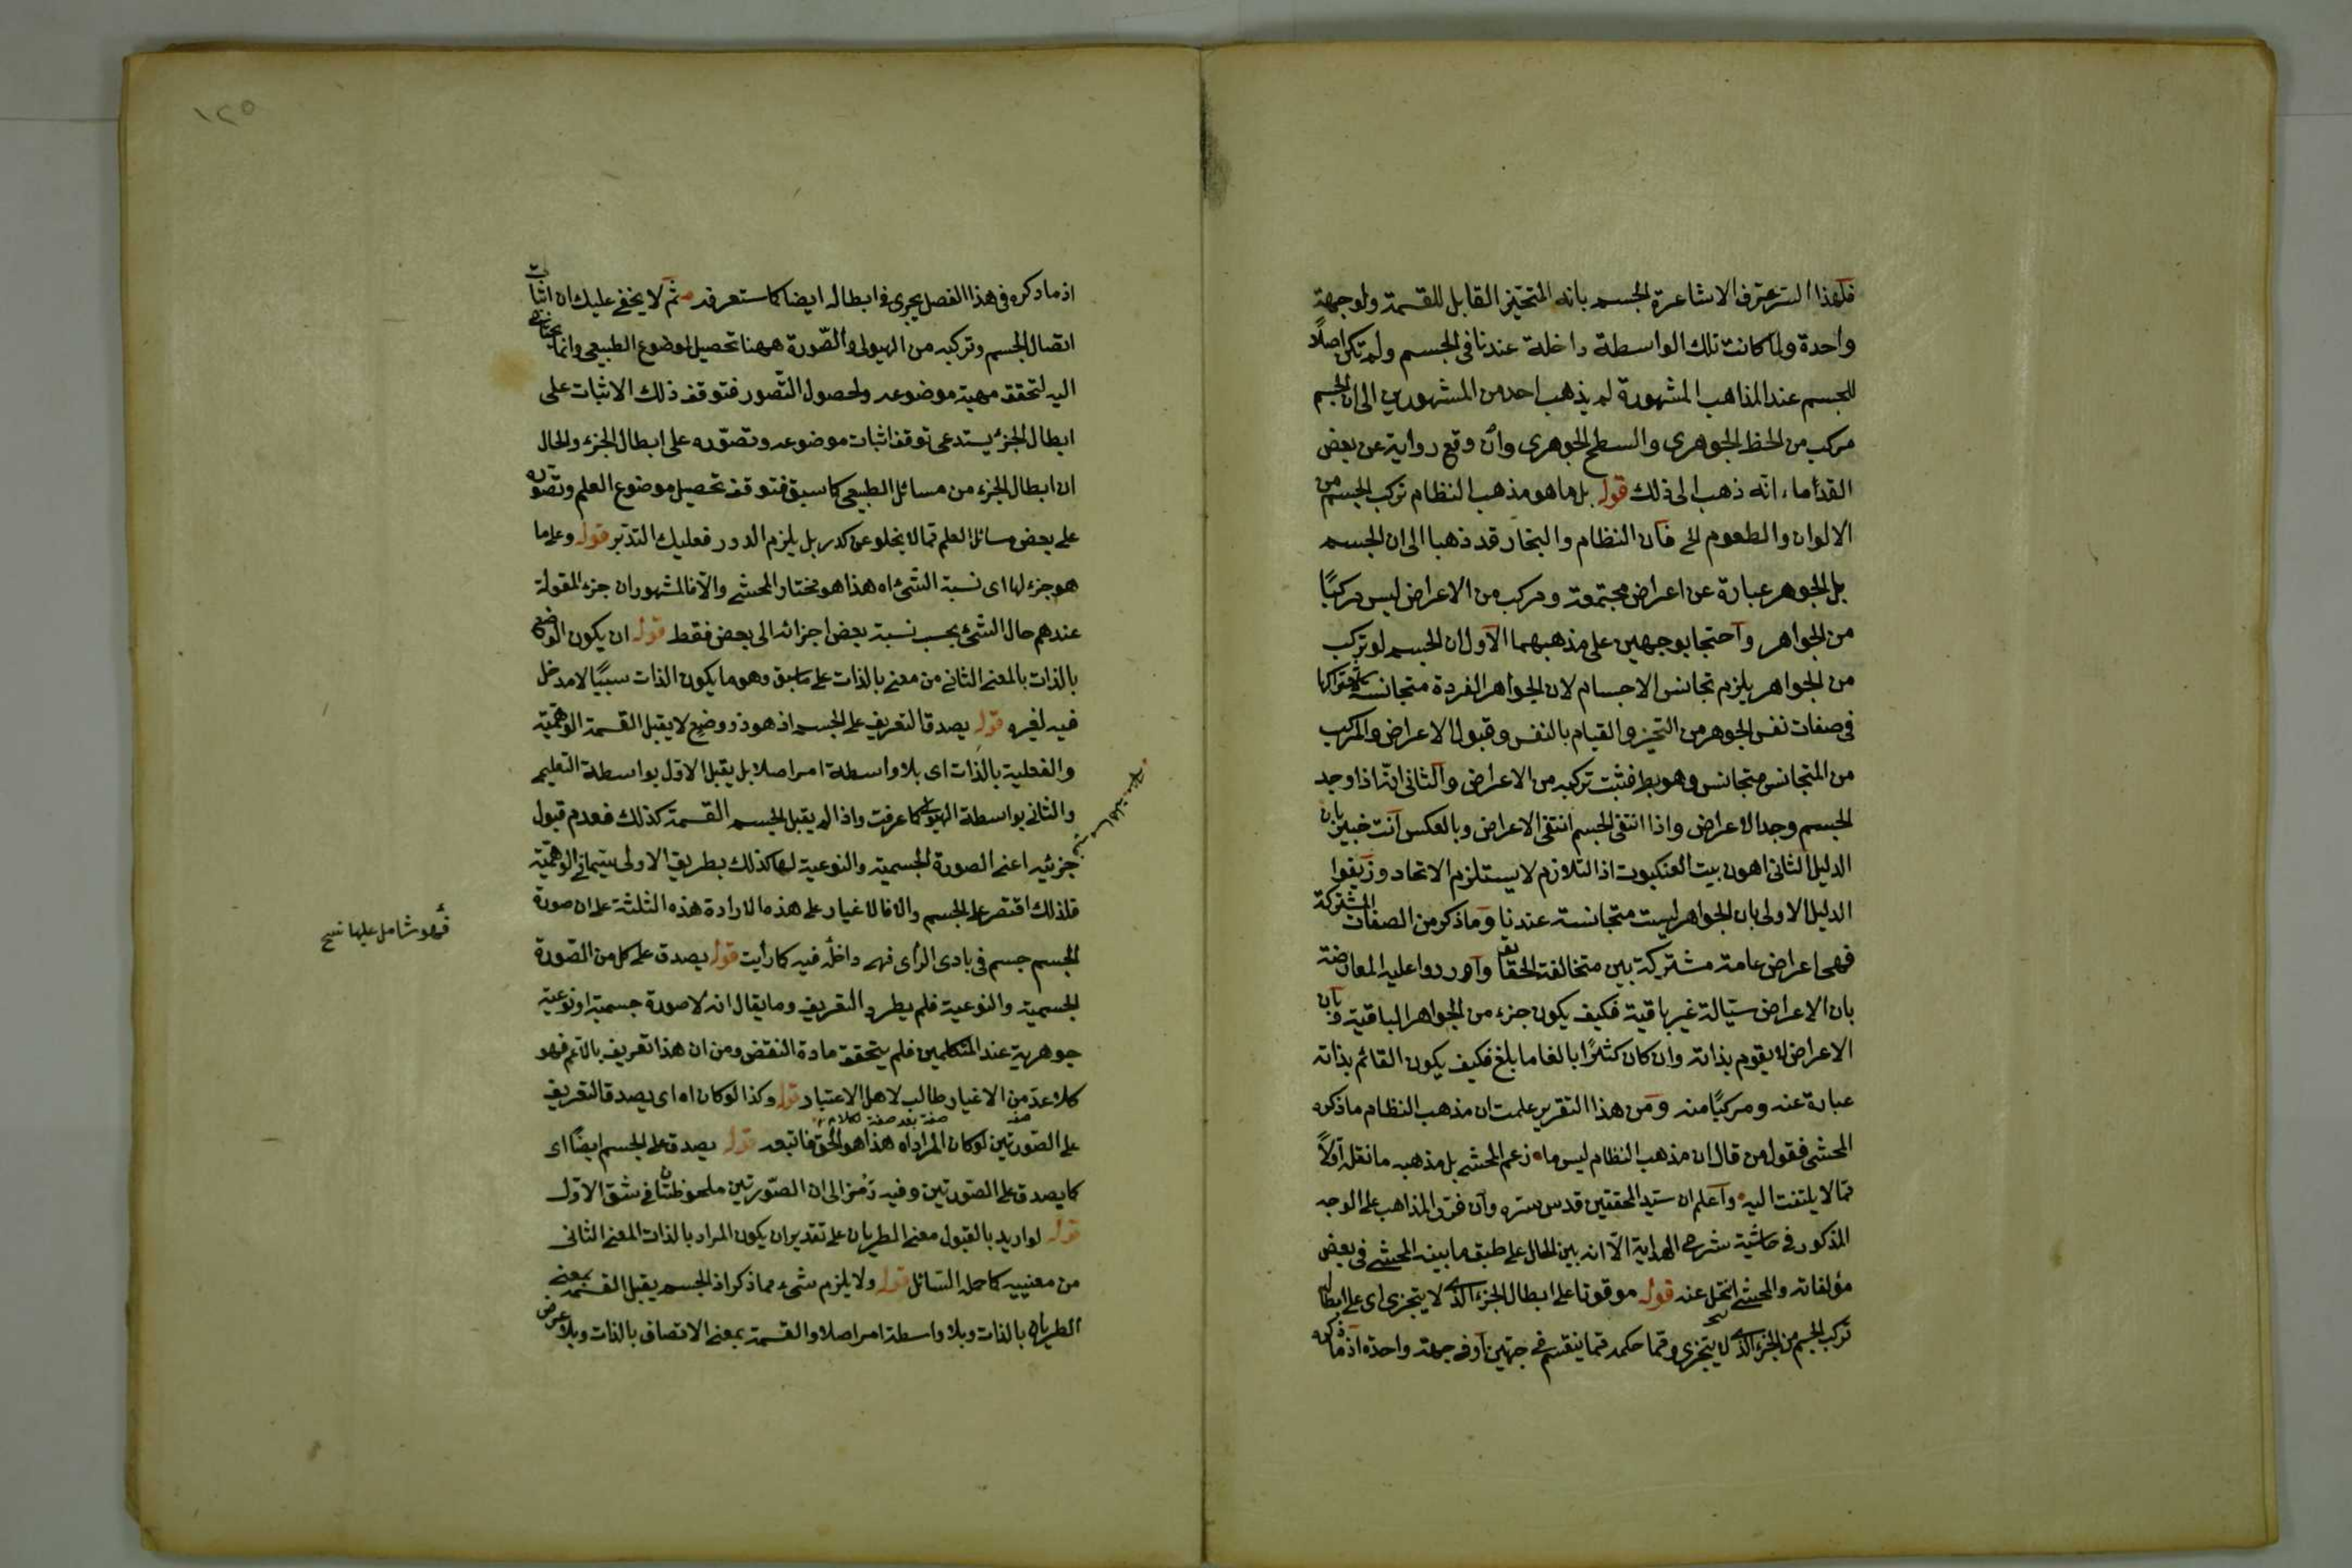 فلهذا السر عترف الاشاعرة الجسم بانه المتحيز القابل للقسمة ولو جهة
واحدة ولما كانت تلك الواسطة داخلة عندنا فى الجسم ولم تكن اصلاً
للجسم عند المذاهب المشهورة لم يذهب احد من المشهورين الى ان الجسم
مركب من الخط الجوهرى والسطح الجوهرى وان وقع رواية عن بعض
القدماء انه ذهب الى ذلك قوله بل ما هو مذهب النظام تركب الجسم من
الالوان والطعوم الخ فان النظام والنجار قد ذهبا الى ان الجسم
بل الجوهر عبارة عن اعراض مجتمعة ومركب من الاعراض ليس مركبًا
من الجواهر واحتجا بوجهين على مذهبهما الاول ان الجسم لو تركب
من الجواهر يلزم تجانس الاجسام لان الجواهر الفردة متجانسة لاشتراكها
فى صفات نفس الجوهر من التحيز والقيام بالنفس وقبول الاعراض والمركب
من المتجانس متجانس وهو بط فثبت تركبه من الاعراض والثانى انه اذا وجد
الجسم وجد الاعراض واذا انتفى الجسم انتفى الاعراض وبالعكس انت خبير بان
الدليل الثانى اهون بيت العنكبوت اذ التلازم لا يستلزم الاتحاد وزيفوا
الدليل الاولى بان الجواهر ليست متجانسة عندنا وما ذكر من الصفات المشتركة
فهى اعراض عامة مشتركة بين متخالفة الحقايق واوردوا عليه المعارضة
بان الاعراض سيّالة غير باقية فكيف يكون جزء من الجواهر الباقية وبان
الاعراض لا يقوم بذاته وان كان كثيرًا بالغا ما بلغ فكيف يكون القائم بذاته
عبارة عنه ومركبًا منه ومن هذا التقرير علمت ان مذهب النظام ما ذكره
المحشى فقول من قال ان مذهب النظام ليس ما زعم المحشى بل مذهبه ما نقله اولاً
مما لا يلتفت اليه واعلم ان سيد المحققين قدس سره وان فرق المذاهب على الوجه
المذكور فى حاشية شرح الهداية الا انه بين الحال على طبق ما بينه المحشى فى بعض
مؤلفاته والمحشى انتحل عنه قوله موقوفا على ابطال الجزء الذى لا يتجزى اى على ابطال
تركب الجسم من الجزء الذى لا يتجزى وفيما حكمه فيما ينقسم فى جهتين او فى جهة واحدة اذ ما ذكره
١٢٥
اذ ما ذكره فى هذا الفصل يجرى فى ابطاله ايضا كما ستعرفه ثم لا يخفى عليك ان اثبات
اتصال الجسم وتركبه من الهيولى والصورة ههنا تحصيل لموضوع الطبيعى وانما يحتاج
اليه لتحقق مهية موضوعه ولحصول التصور فتوقف ذلك الاثبات على
ابطال الجزء يستدعى توقف اثبات موضوعه وتصوره على ابطال الجزء والحال
ان ابطال الجزء من مسائل الطبيعى كما سبق فتوقف تحصيل موضوع العلم وتصوره
على بعض مسائل العلم مما لا يخلو عن كدر بل يلزم الدور فعليك التدبر قوله وعلى ما
هو جزء لها اى نسبة الشئ اه هذا هو مختار المحشى والا فالمشهور ان جزء المقولة
عندهم حال الشئ بحسب نسبة بعض اجزائه الى بعض فقط قوله ان يكون الوضع
بالذات بالمعنى الثانى من معنى بالذات على ما سبق وهو ما يكون الذات سببًا لا مدخل
فيه لغيره قوله يصدق التعريف على الجسم اذ هو ذو وضع لا يقبل القسمة الوهمية
والفعلية بالذات اى بلا واسطة امر اصلا بل يقبل الاول بواسطة التعليمى
والثانى بواسطة الهيولى كما عرفت واذا لم يقبل الجسم القسمة كذلك فعدم قبول
جزئيه اعنى الصورة الجسمية والنوعية لها كذلك بطريق الاولى سيما فى الوهمية
فلذلك اقتصر على الجسم والا فالاغيار على هذه الارادة هذه الثلثة على ان صورة
الجسم جسم فى بادى الراى فهى داخلة فيه كما رأيت قوله يصدق على كل من الصورة
الجسمية والنوعية فلم يطرد التعريف وما يقال انه لا صورة جسمية او نوعية
جوهرية عند المتكلمين فلم يتحقق مادة النقض ومن ان هذا تعريف بالاعم فهو
كلا عدّ من الاغيار طالب لاهل الاعتبار قوله وكذا لو كان اه اى يصدق التعريف
صفة بعد صفة
على الصورتين لو كان المراد اه هذا هو الحق فاتبعه قوله يصدق على الجسم ايضًا اى
كما يصدق على الصورتين وفيه رمز الى ان الصورتين ملحوظتان فى شق الاول
قوله لو اريد بالقبول معنى الطريان على تقدير ان يكون المراد بالذات المعنى الثانى
من معنييه كما حمله السائل قوله ولا يلزم شئ مما ذكر اذ الجسم يقبل القسمة بمعنى
الطريان بالذات وبلا واسطة امر اصلا والقسمة بمعنى الاتصاف بالذات وبلا عرض
فهو شامل عليها نسخ